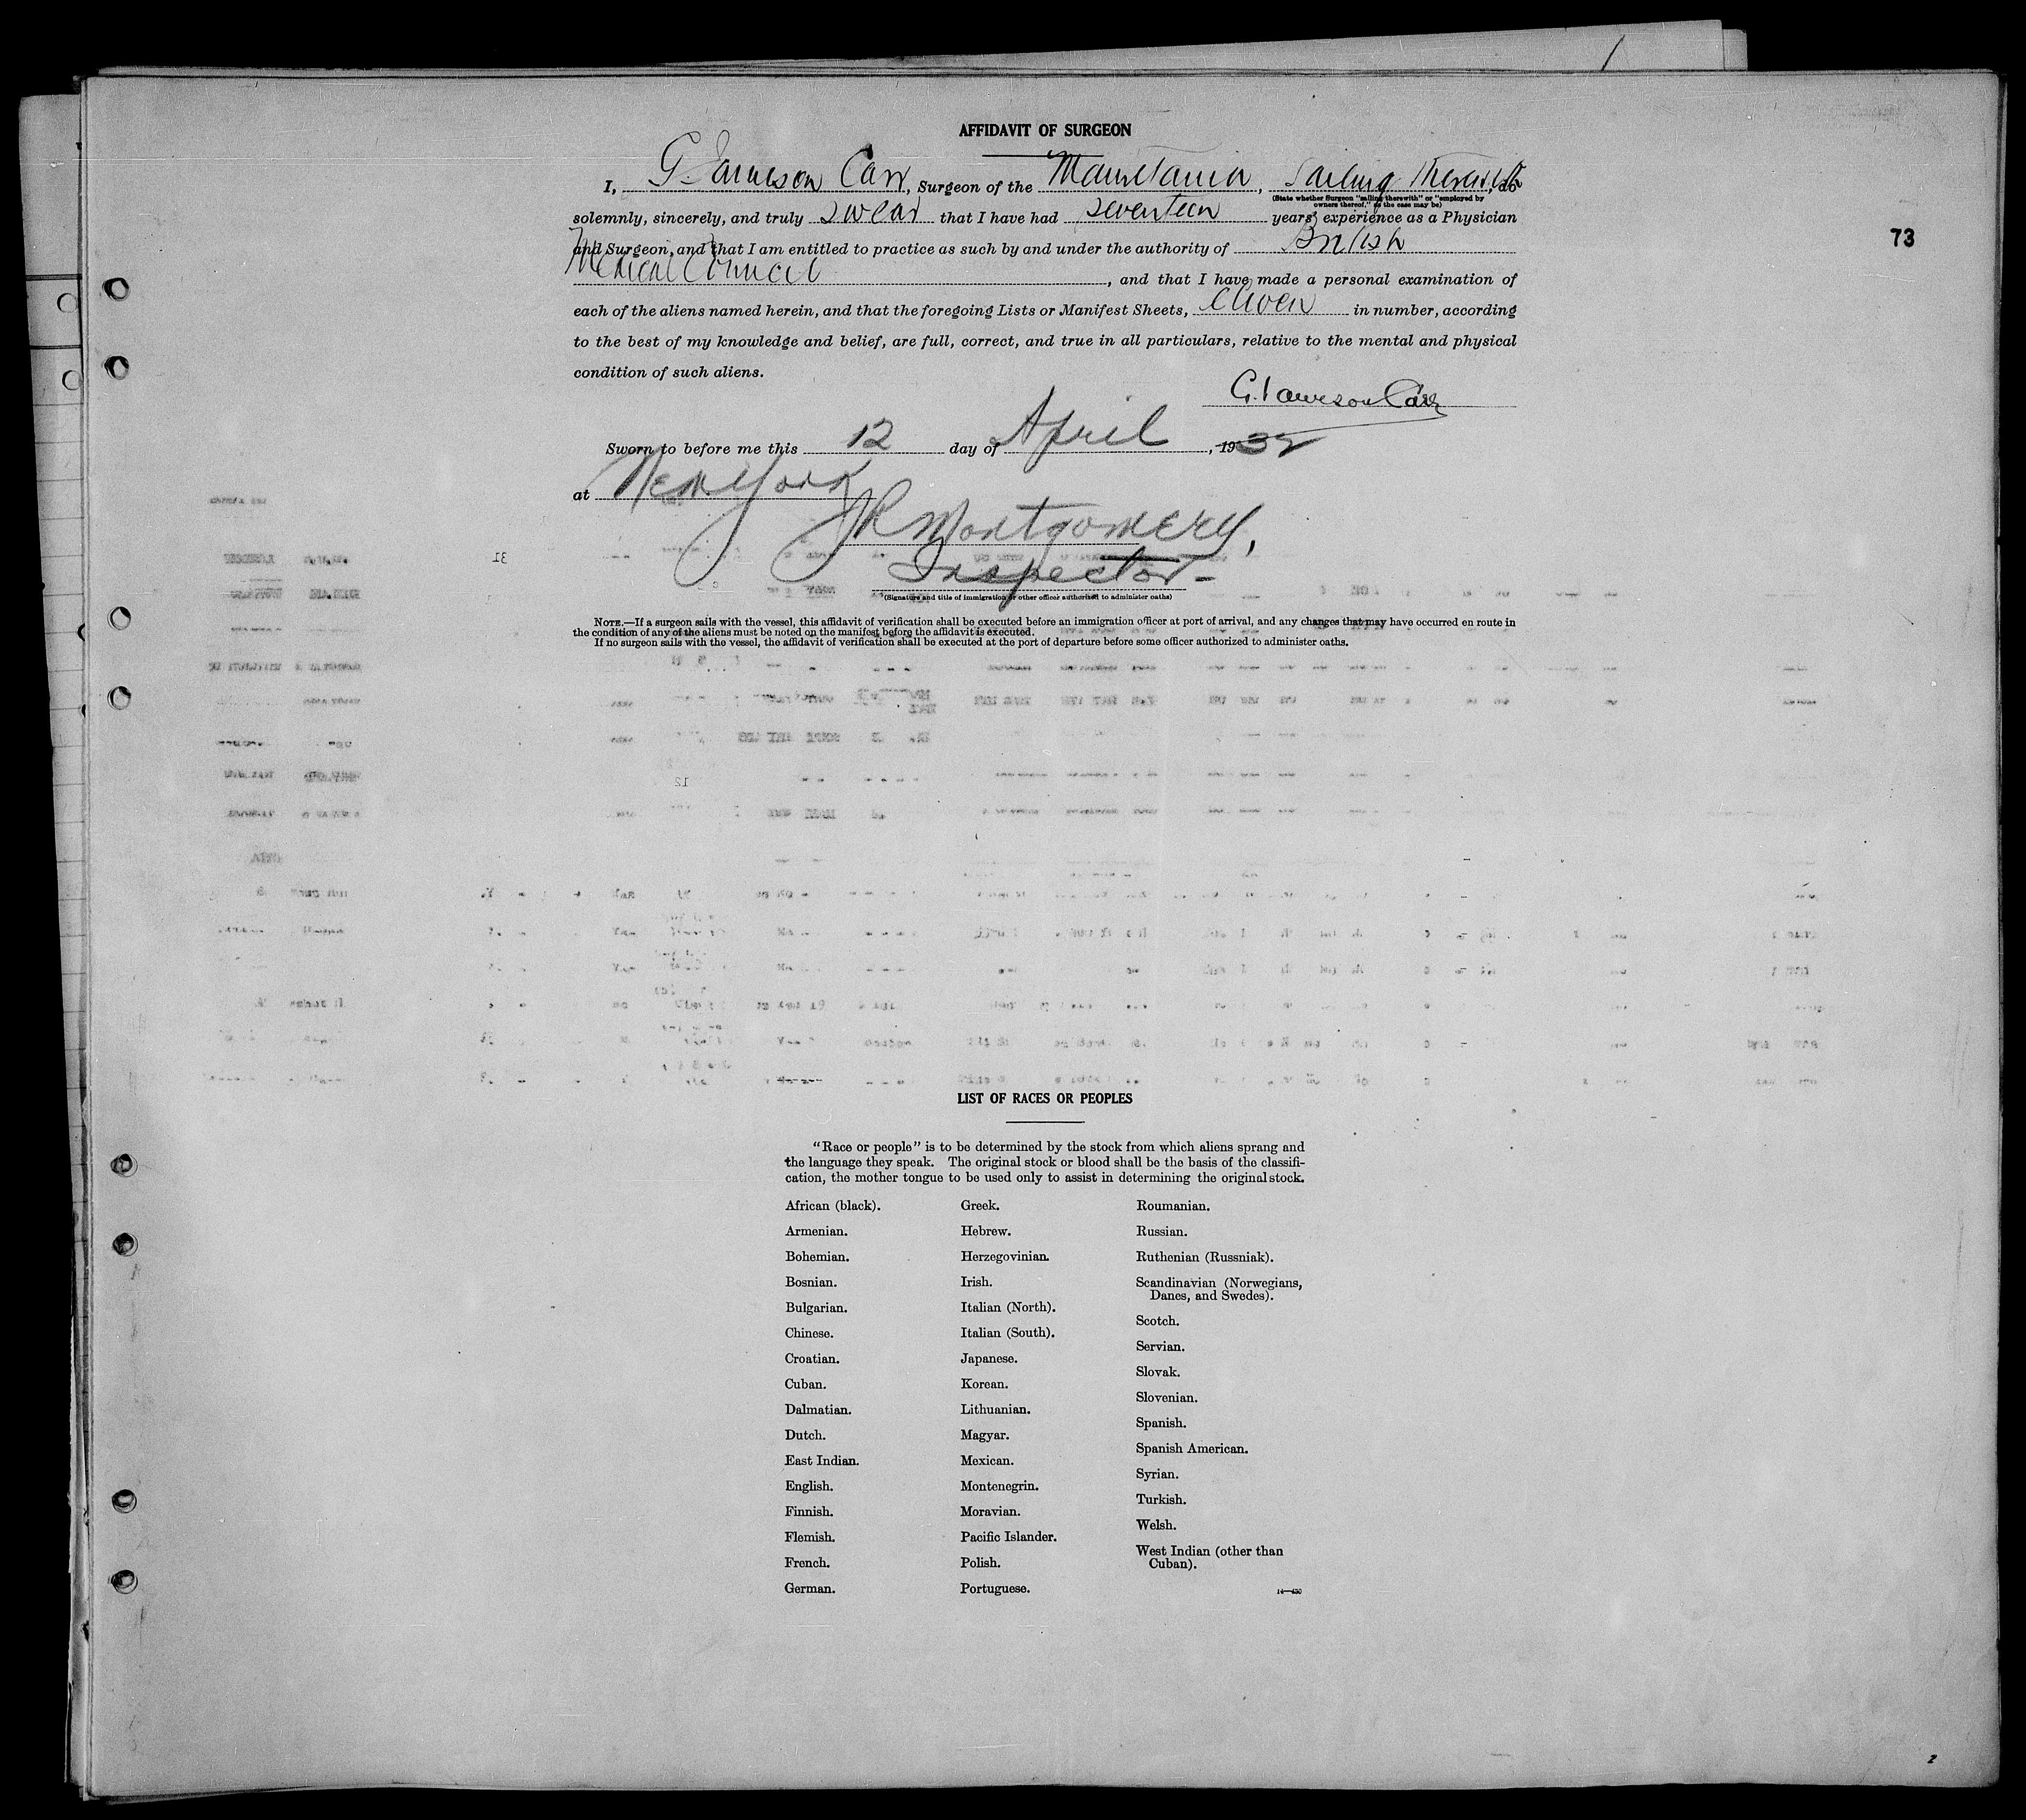 AFFIDAVIT OF SURGEON
I, G. Jameson Carr, Surgeon of the Mauretania, Sailing Therewith, do
(State whether Surgeon "sailing therewith" or "employed by
owners thereof," as the case may be)
solemnly, sincerely, and truly swear that I have had seventeen years' experience as a Physician
and Surgeon, and that I am entitled to practice as such by and under the authority of British
Medical Council, and that I have made a personal examination of
73
each of the aliens named herein, and that the foregoing Lists or Manifest Sheets, eleven in number, according
to the best of my knowledge and belief, are full, correct, and true in all particulars, relative to the mental and physical
condition of such aliens.
G. Jameson Carr
Sworn to before me this 12 day of April, 1932
at New York
JR Montgomery,
Inspector-
(Signature and title of immigration or other officer authorized to administer oaths)
NOTE.—If a surgeon sails with the vessel, this affidavit of verification shall be executed before an immigration officer at port of arrival, and any changes that may have occurred en route in
the condition of any of the aliens must be noted on the manifest before the affidavit is executed.
If no surgeon sails with the vessel, the affidavit of verification shall be executed at the port of departure before some officer authorized to administer oaths.
LIST OF RACES OR PEOPLES
"Race or people" is to be determined by the stock from which aliens sprang and
the language they speak. The original stock or blood shall be the basis of the classifi-
cation, the mother tongue to be used only to assist in determining the original stock.
African (black).
Armenian.
Bohemian.
Bosnian.
Bulgarian.
Chinese.
Croatian.
Cuban.
Dalmatian.
Dutch.
East Indian.
English.
Finnish.
Flemish.
French.
German.
Greek.
Hebrew.
Herzegovinian.
Irish.
Italian (North).
Italian (South).
Japanese.
Korean.
Lithuanian.
Magyar.
Mexican.
Montenegrin.
Moravian.
Pacific Islander.
Polish.
Portuguese.
Roumanian.
Russian.
Ruthenian (Russniak).
Scandinavian (Norwegians,
Danes, and Swedes).
Scotch.
Servian.
Slovak.
Slovenian.
Spanish.
Spanish American.
Syrian.
Turkish.
Welsh.
West Indian (other than
Cuban).
14—430
2